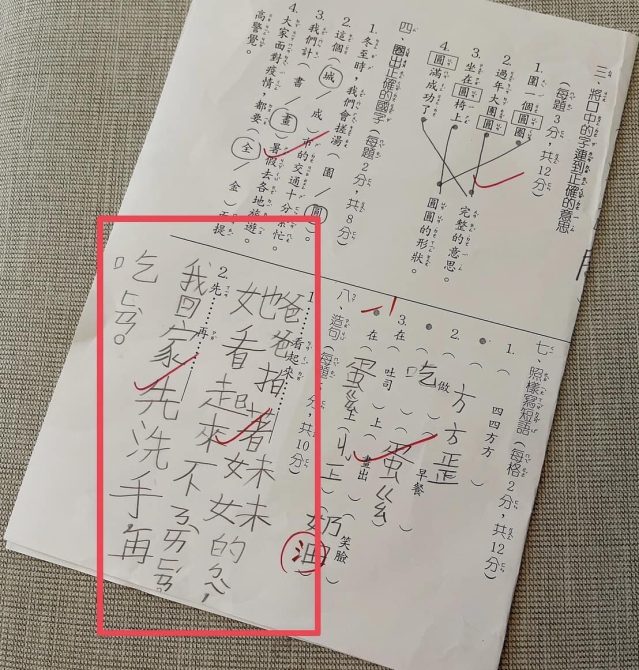 三、將口中的字連到正確的意思
(每題3分,共12分)
1. 圍一個圓圈
2. 過年大團圓
3. 坐在圓椅上
4. 圓滿成功了
完整的意思。
圓圓的形狀。
四、圈出正確的國字(每題2分,共8分)
1. 冬至時,我們會搓湯(園/圓)。
2. 這個(城/成)市的交通十分繁忙。
3. 我們計(書/畫)暑假去各地旅遊。
4. 大家面對疫情,都要(全/金)提
高警覺。
七、照樣寫短語(每格2分,共12分)
1. 四四方方
方方
2. 做 早餐
(吃)(蛋ㄍㄠ)
3. 在吐司上畫出笑臉
在(蛋ㄍㄠ)上 奶油
八、造句(每題 分,共10分)
1. 看起來
爸爸拍著妹妹的
她看起來不
2. 先 再
我回家先洗手,再
吃